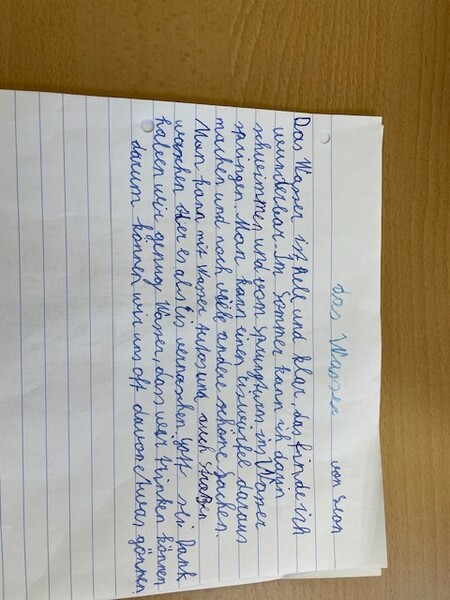 das Wasser von Leon
Das Wasser ist hell und klar, das finde ich
wunderbar. Im Sommer kann ich darin
schwimmen und vom Sprungturm ins Wasser
springen. Man kann einen Eiswürfel daraus
machen und noch viele andere schöne Sachen.
Man kann mit Wasser Autos und auch Straßen
waschen. Oder es als Eis vernaschen. Gott sei Dank
haben wir genug Wasser, dass wir trinken können
darum können wir uns oft davon etwas gönnen